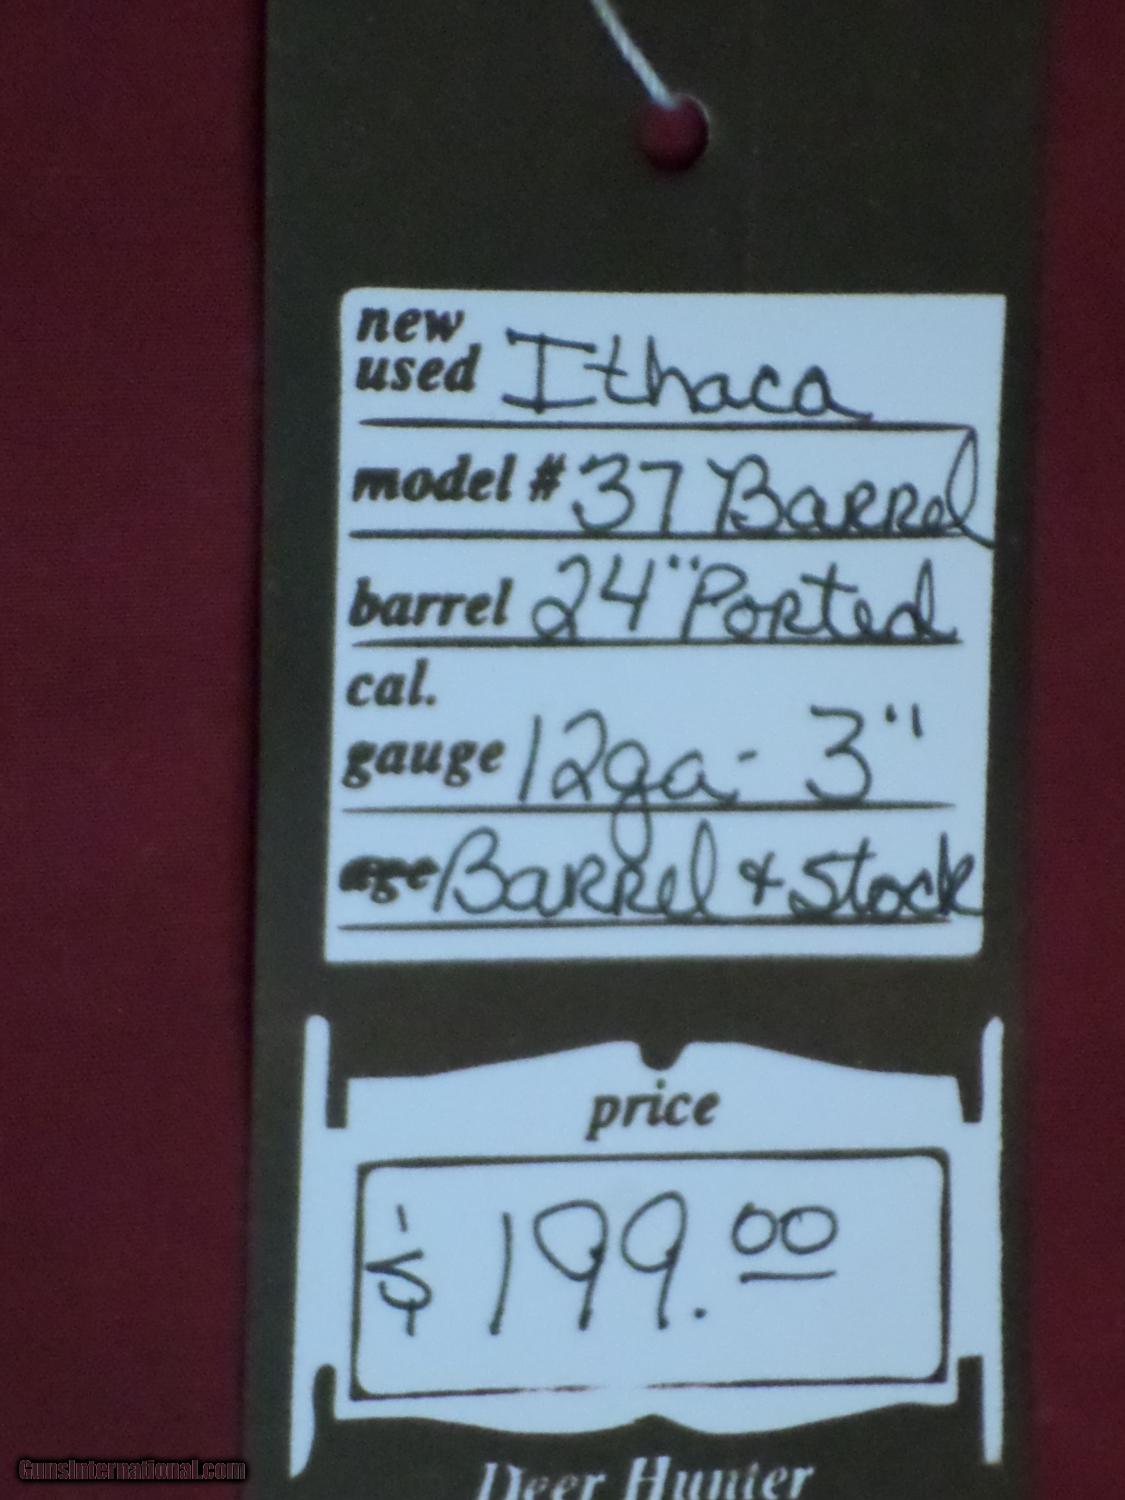 new
used Ithaca
model # 37 Barrel
barrel 24" Ported
cal.
gauge 12ga - 3"
age Barrel & Stock
price
$199.00
Deer Hunter
GunsInternational.com